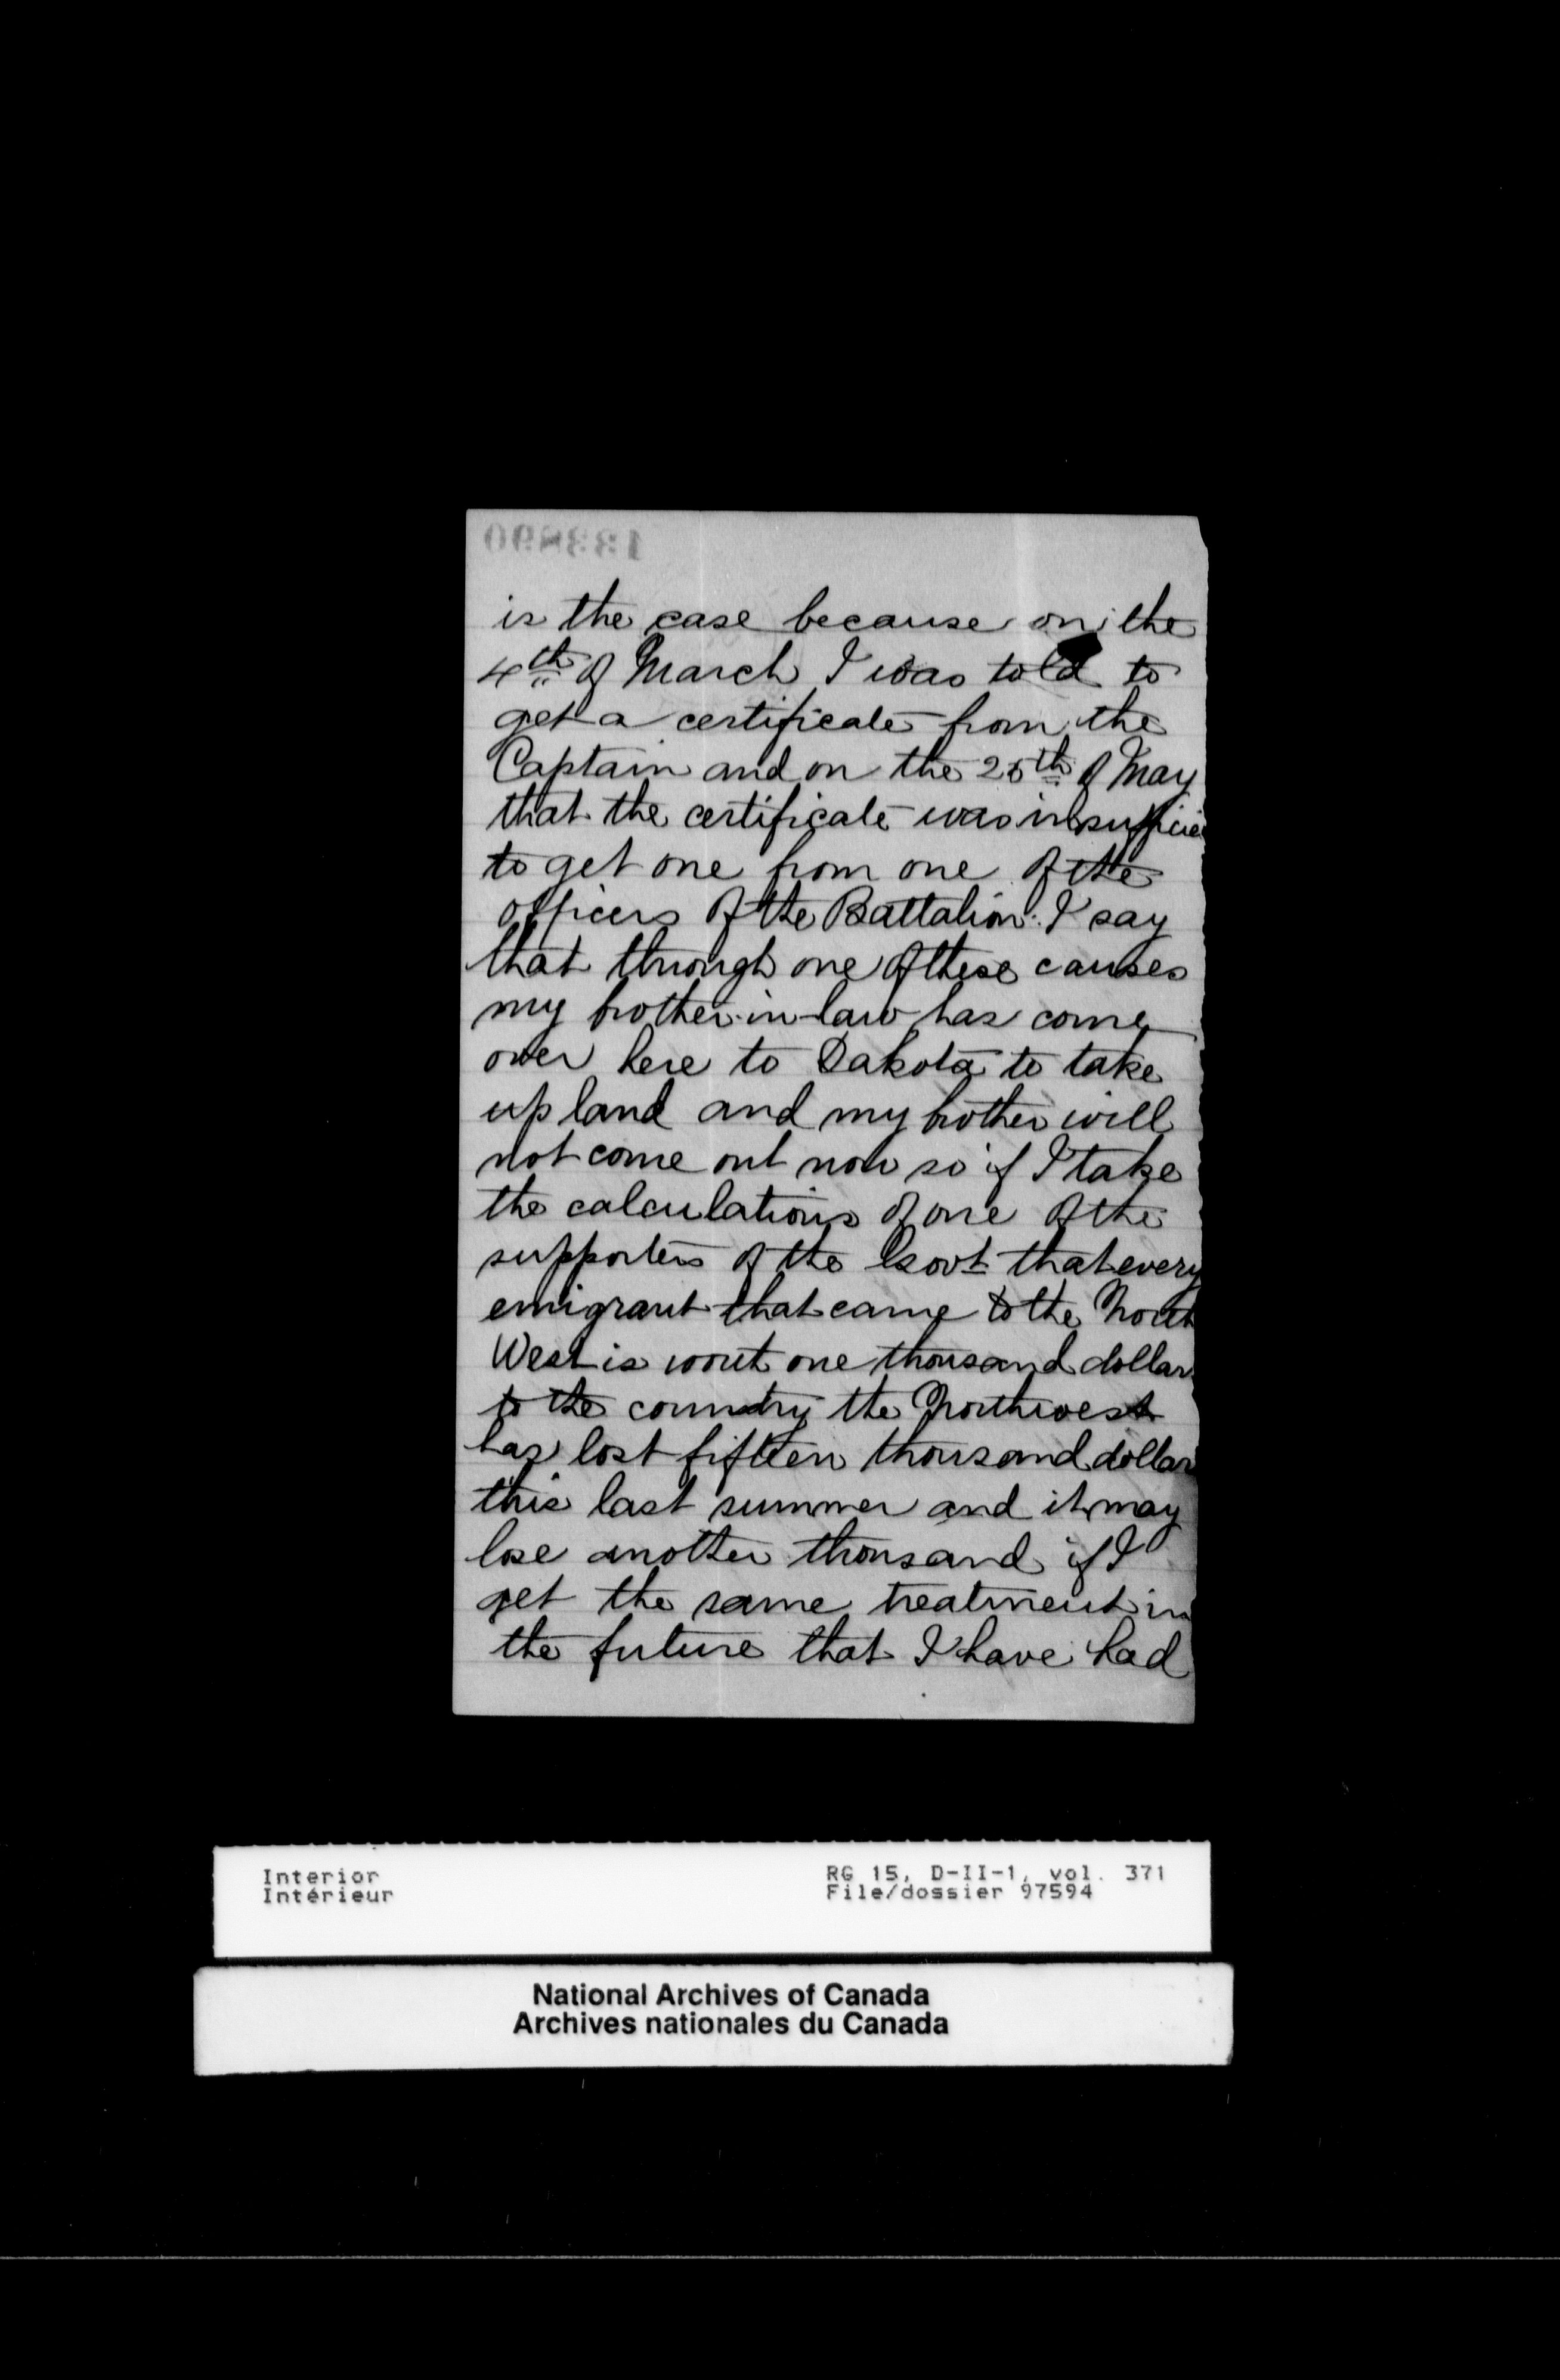 is the case because on the
4th of March I was told to
get a certificate from the
Captain and on the 25th of May
that the certificate was insufficie
to get one from one of the
officers of the Battalion. I say
that through one of these causes
my brother-in-law has come
over here to Dakota to take
up land and my brother will
not come out now so if I take
the calculations of one of the
supporters of the Govt that every
emigrant that came to the North
West is wort one thousand dollar
to the country the Northwest
has lost fifteen thousand dollar
this last summer and it may
lose another thousand if I
get the same treatment in
the future that I have had
Interior
Intérieur
RG 15, D-II-1, vol. 371
File/dossier 97594
National Archives of Canada
Archives nationales du Canada